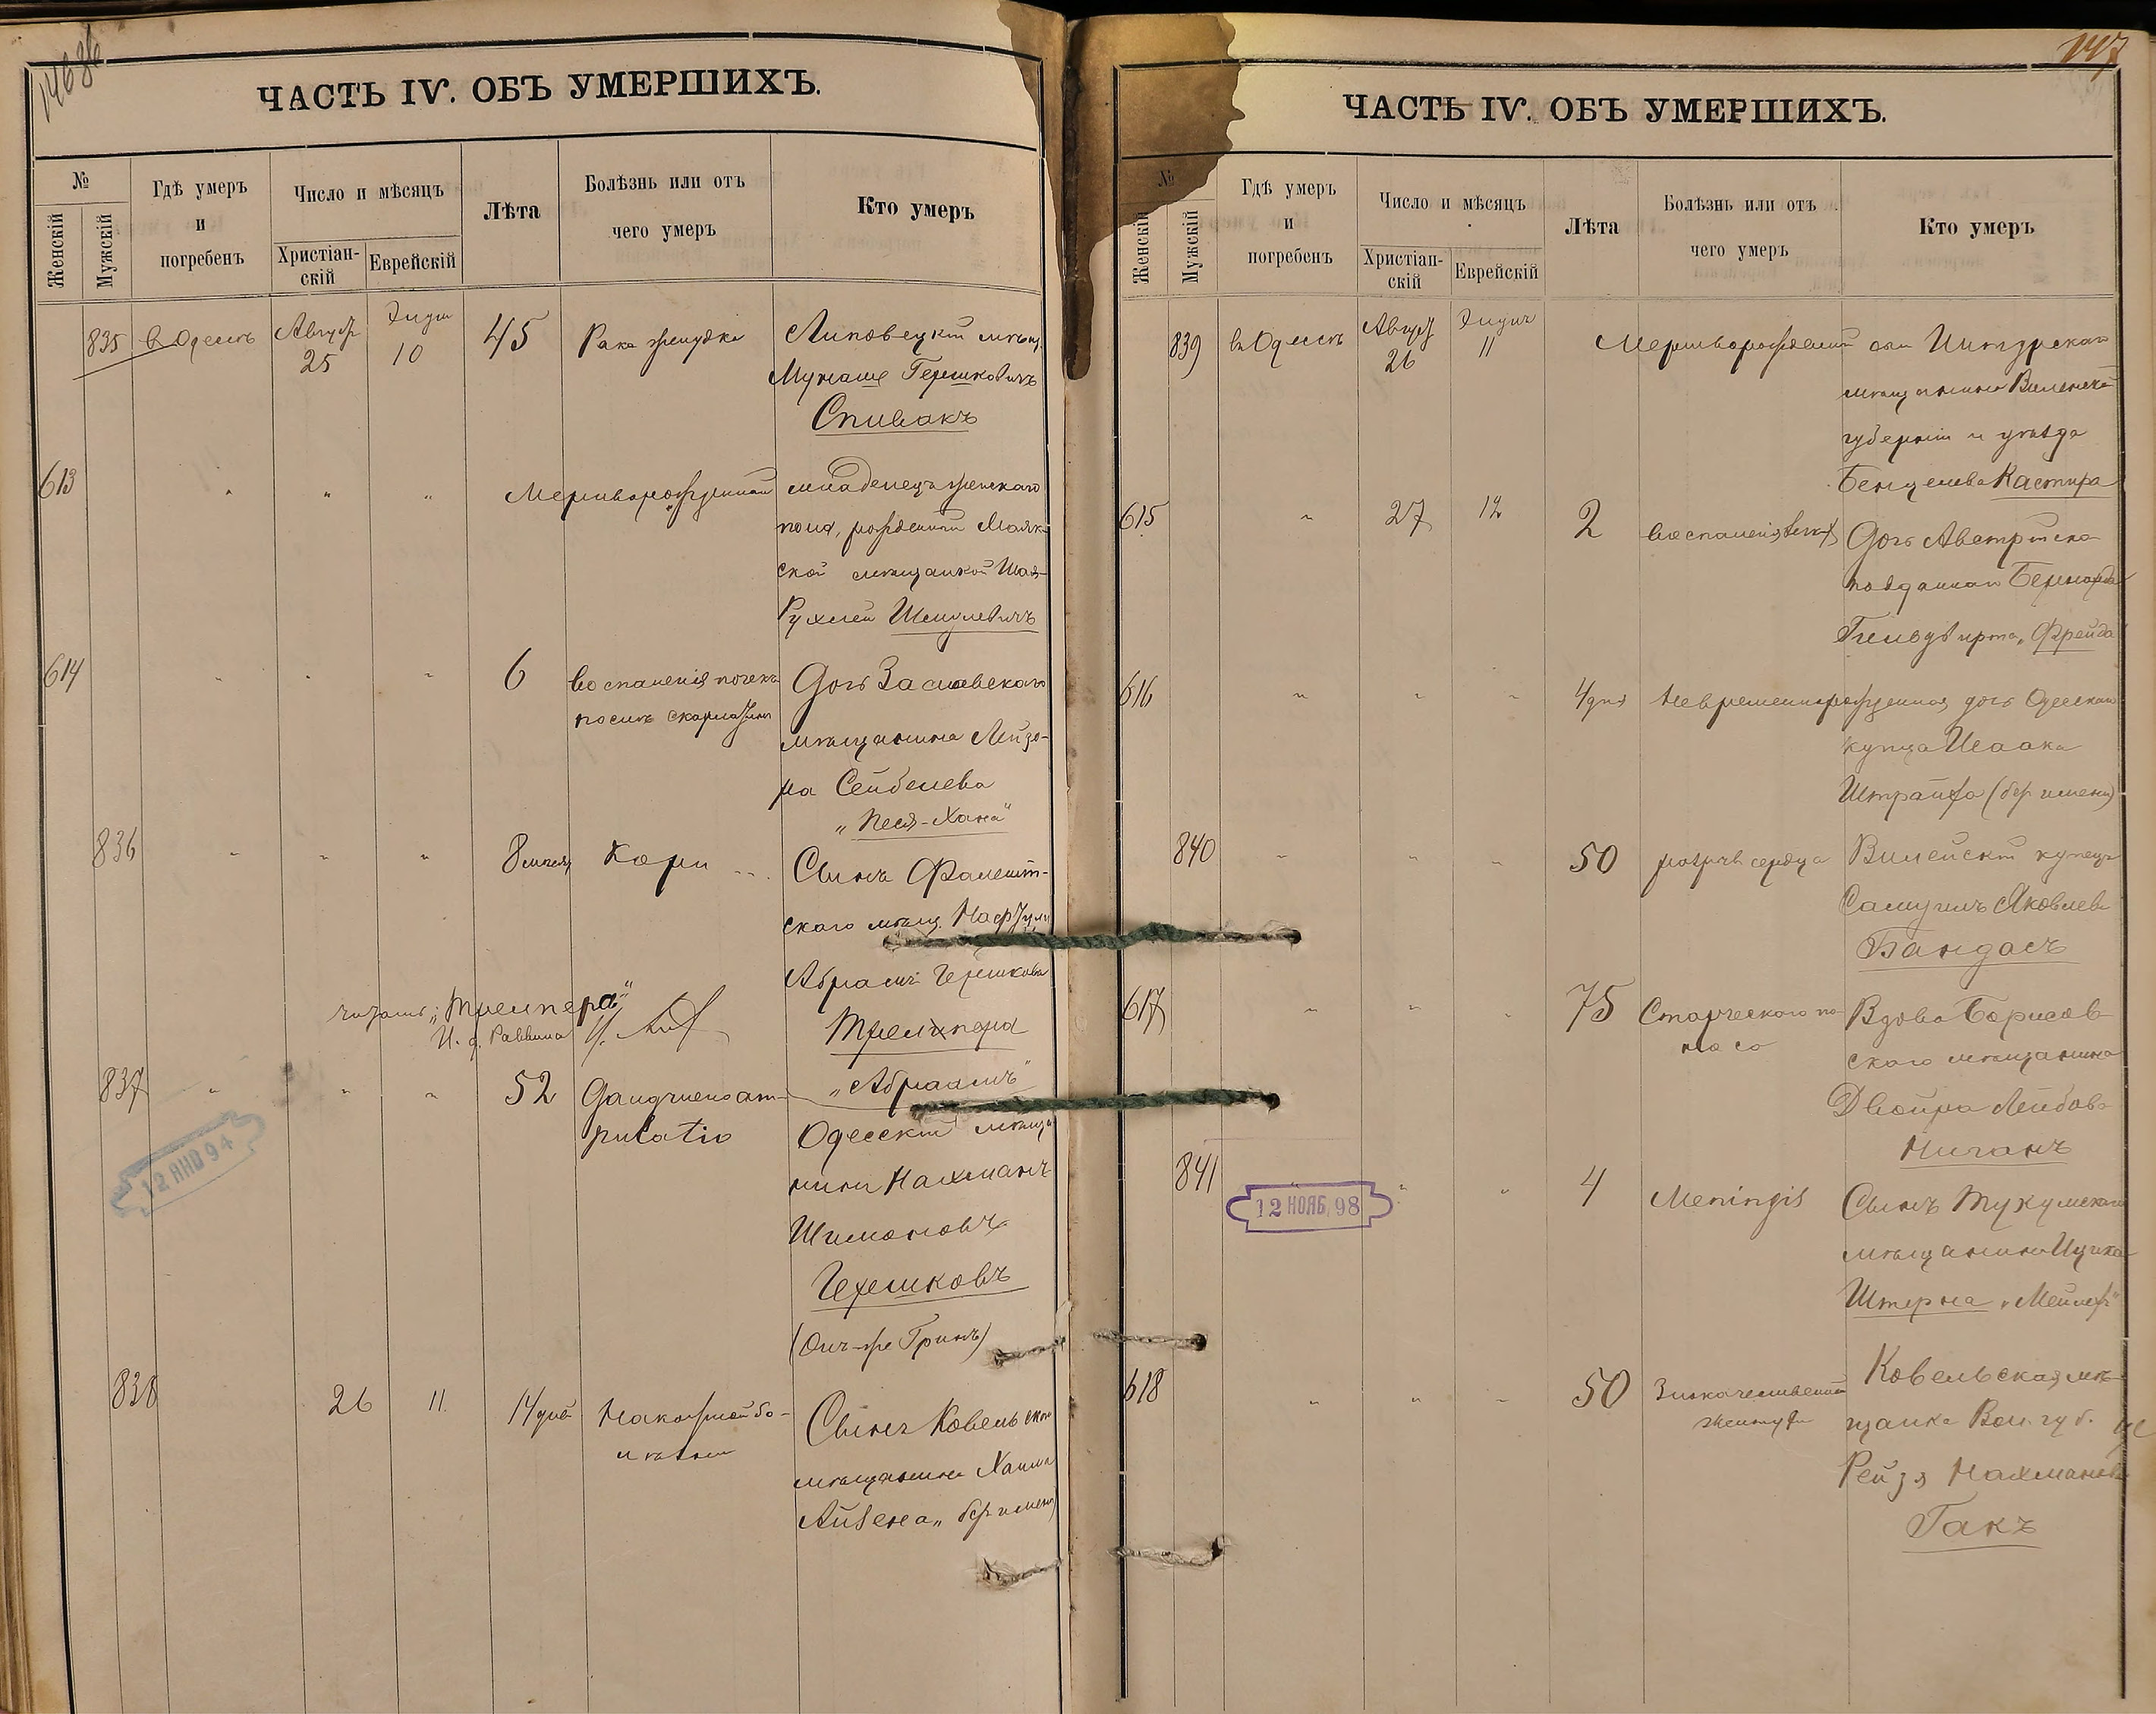 146об
ЧАСТЬ IV. ОБЪ УМЕРШИХЪ.
№
Женскій
Мужскій
Гдѣ умеръ
и
погребенъ
Число и мѣсяцъ
Христіан-
скій
Еврейскій
Лѣта
Болѣзнь или отъ
чего умеръ
Кто умеръ
835 въ Одессѣ Август 25 Элуль 10 45 Рака желудка Липовецкій мѣщ.
Мунаше Гершковичъ
Спивакъ
613 " " " Мертворожденный младенецъ женскаго
пола, рожденный Маяк-
ской мѣщанкой Шая-
Рухлей Шмулевичъ
614 " " " 6 воспаленія почекъ Дочь Заславскаго
послѣ скарлатины
мѣщанина Лейзо-
ра Сейбелева
„Песя-Хана"
836 " " " 8 мѣсяц. Кори Сынъ Фалешт-
скаго мѣщ. Нафтули
Абрамъ Гершкова
читать „Тремпера"
И. д. Раввина
Тремпера
„Абраамъ"
837 " " " 52 Gangrienoam-
putatio
Одесскій мѣща-
нинъ Нахманъ
Шимоновъ
Гершковъ
(Онъ-же Гринъ)
838 26 11 14 дней Накожной бо-
лѣзни
Сынъ Ковельскаго
мѣщанина Хаима
Айзена „без имени
12 ЯНВ 94
147
ЧАСТЬ IV. ОБЪ УМЕРШИХЪ.
№
Женскій
Мужскій
Гдѣ умеръ
и
погребенъ
Число и мѣсяцъ
Христіан-
скій
Еврейскій
Лѣта
Болѣзнь или отъ
чего умеръ
Кто умеръ
839 въ Одессѣ Август 26 Элуль 11 Мертворожденный сын
мѣщанина Виленской
губерніи и уѣзда
Бенцелева Кастира
615 " 27 12 2 воспаленія легких Дочь Австрійска
подданнаго Бернарда
Гельдвирта „Фрейда
616 " " " 4 дня Невременнорожденная дочь Одесскаго
купца Исаака
Штрайфа (без имени)
840 " " " 50 порокъ сердца Вилейскій купецъ
Самуилъ Яковлев
Бандасъ
617 " " " 75 Старческого по-
носа
Вдова Борисов-
скаго мѣщанина
Двойра Лейбова
Ничанъ
841 " " 4 Meningis Сынъ Тукумскаго
мѣщанина Ицика
Штерна „Мейлех"
12 НОЯБ. 98
618 " " " 50 Злокачественной Ковельская мѣ-
щанка Вол. губ.
Рейзя Нахманова
Гакъ